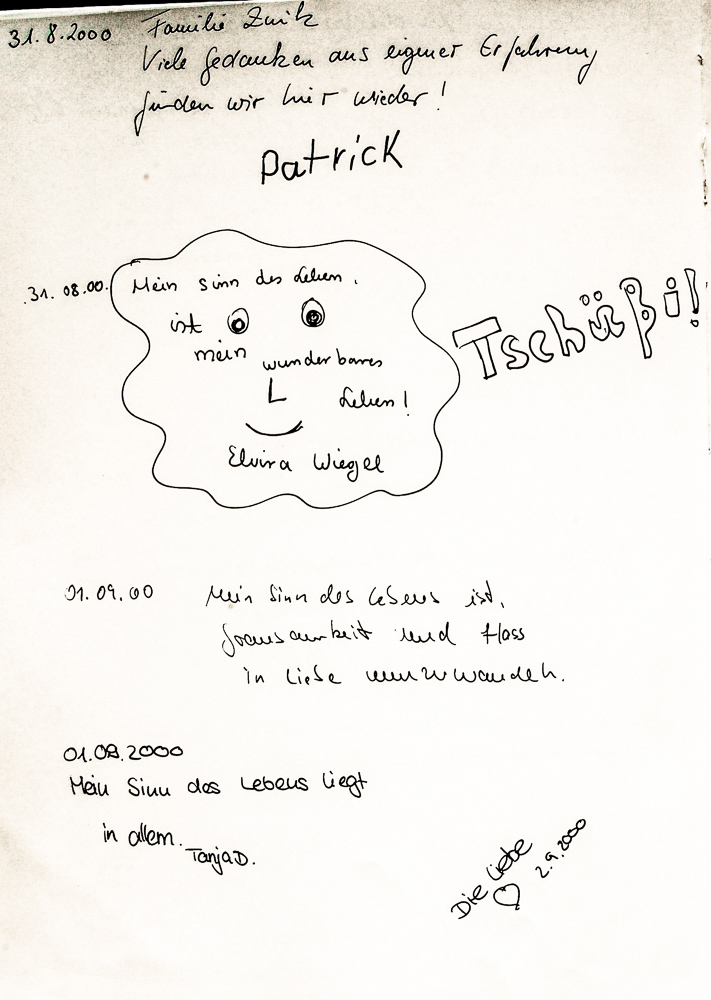 31.8.2000 Familie
Viele Gedanken aus eigener Erfahrung
finden wir hier wieder!
Patrick
31.08.00. Mein Sinn des Leben.
ist
mein wunderbares
Leben!
Elvira Wiegel
Tschüßi!
01.09.00 Mein Sinn des Lebens ist,
Grausamkeit und Hass
in Liebe umzuwandeln.
01.09.2000
Mein Sinn des Lebens liegt
in allem.
Tanja D.
Die Liebe
2.9.2000